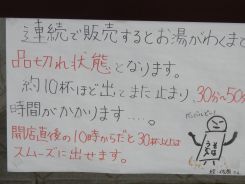 連続で販売するとお湯がわくまで
品切れ状態となります。
約10杯ほど出とまた止まり、30分〜50分
時間がかかります…。
開店直後の10時からだと30杯以上は
スムーズに出せます。
うどん
そば